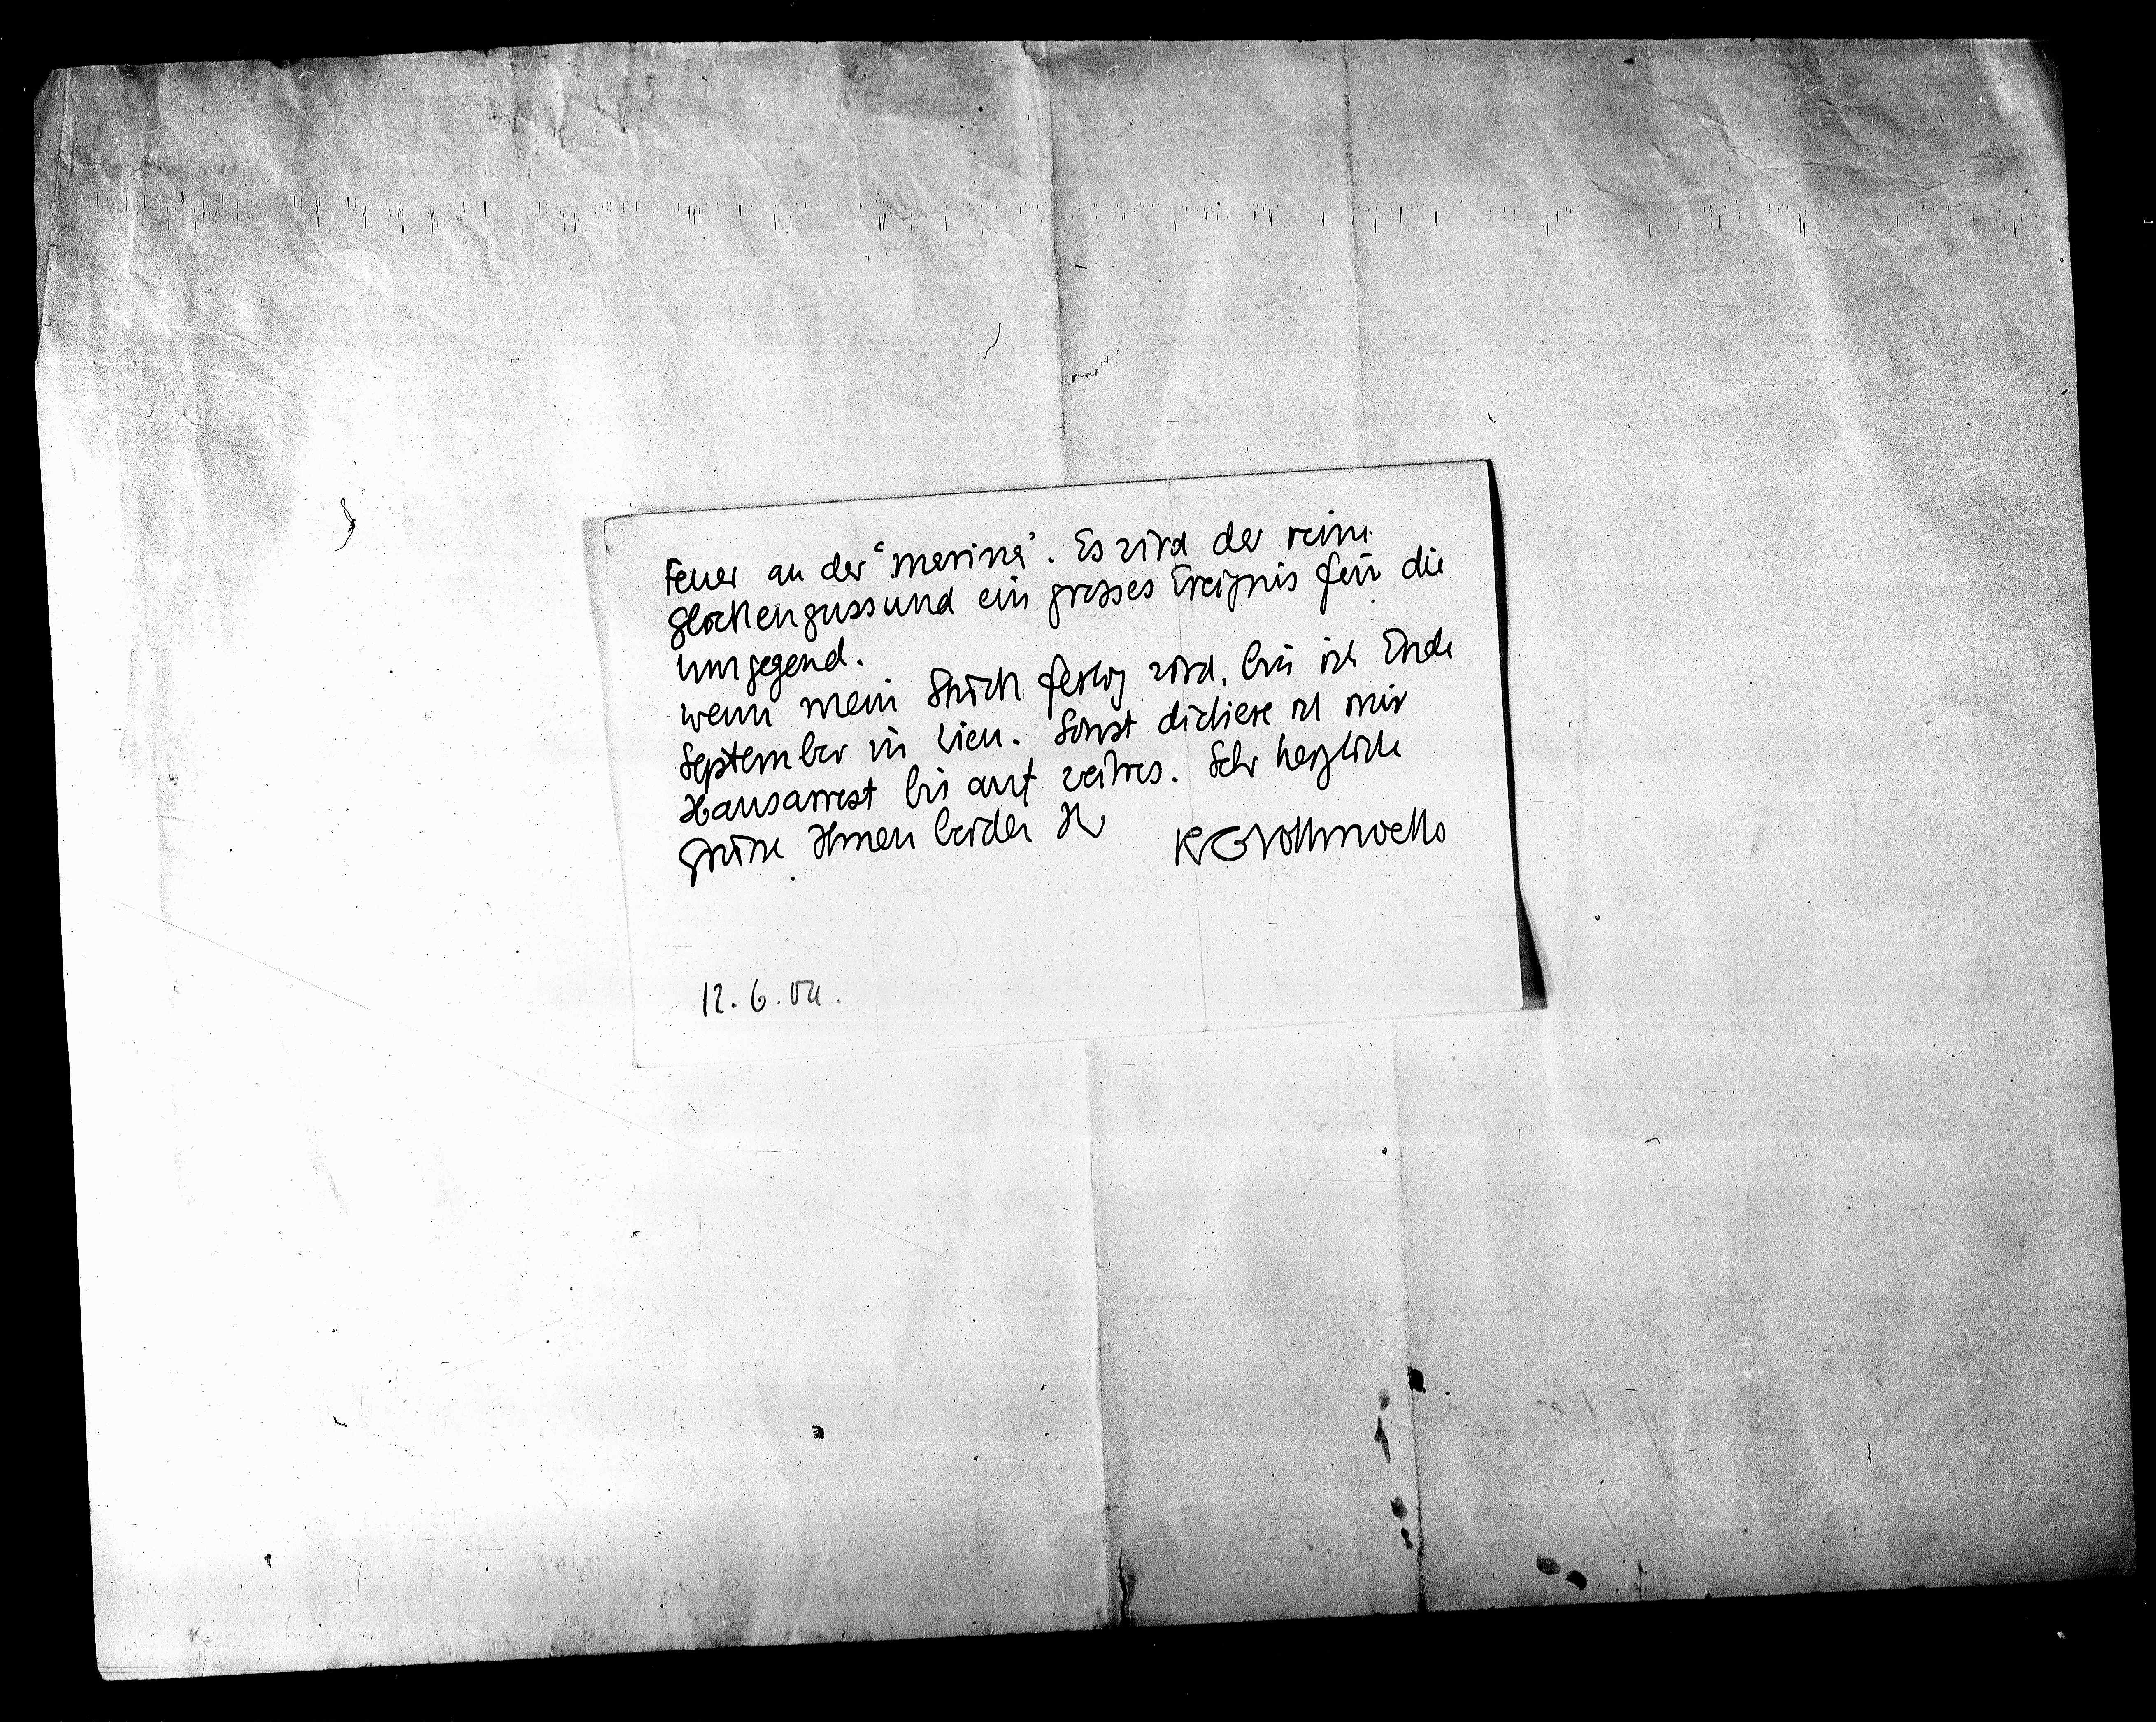 Feuer an der "Marina". Es wird der reine
Glockenguss und ein grosses Ereignis für die
Umgegend.
Wenn mein Stück fertig wird, bin ich Ende
September in Wien. Sonst dictiere ich mir
Hausarrest bis auf weitres. Sehr herzliche
Grüsse Ihnen beiden Ihr
KGVollmoeller
12.6.04.